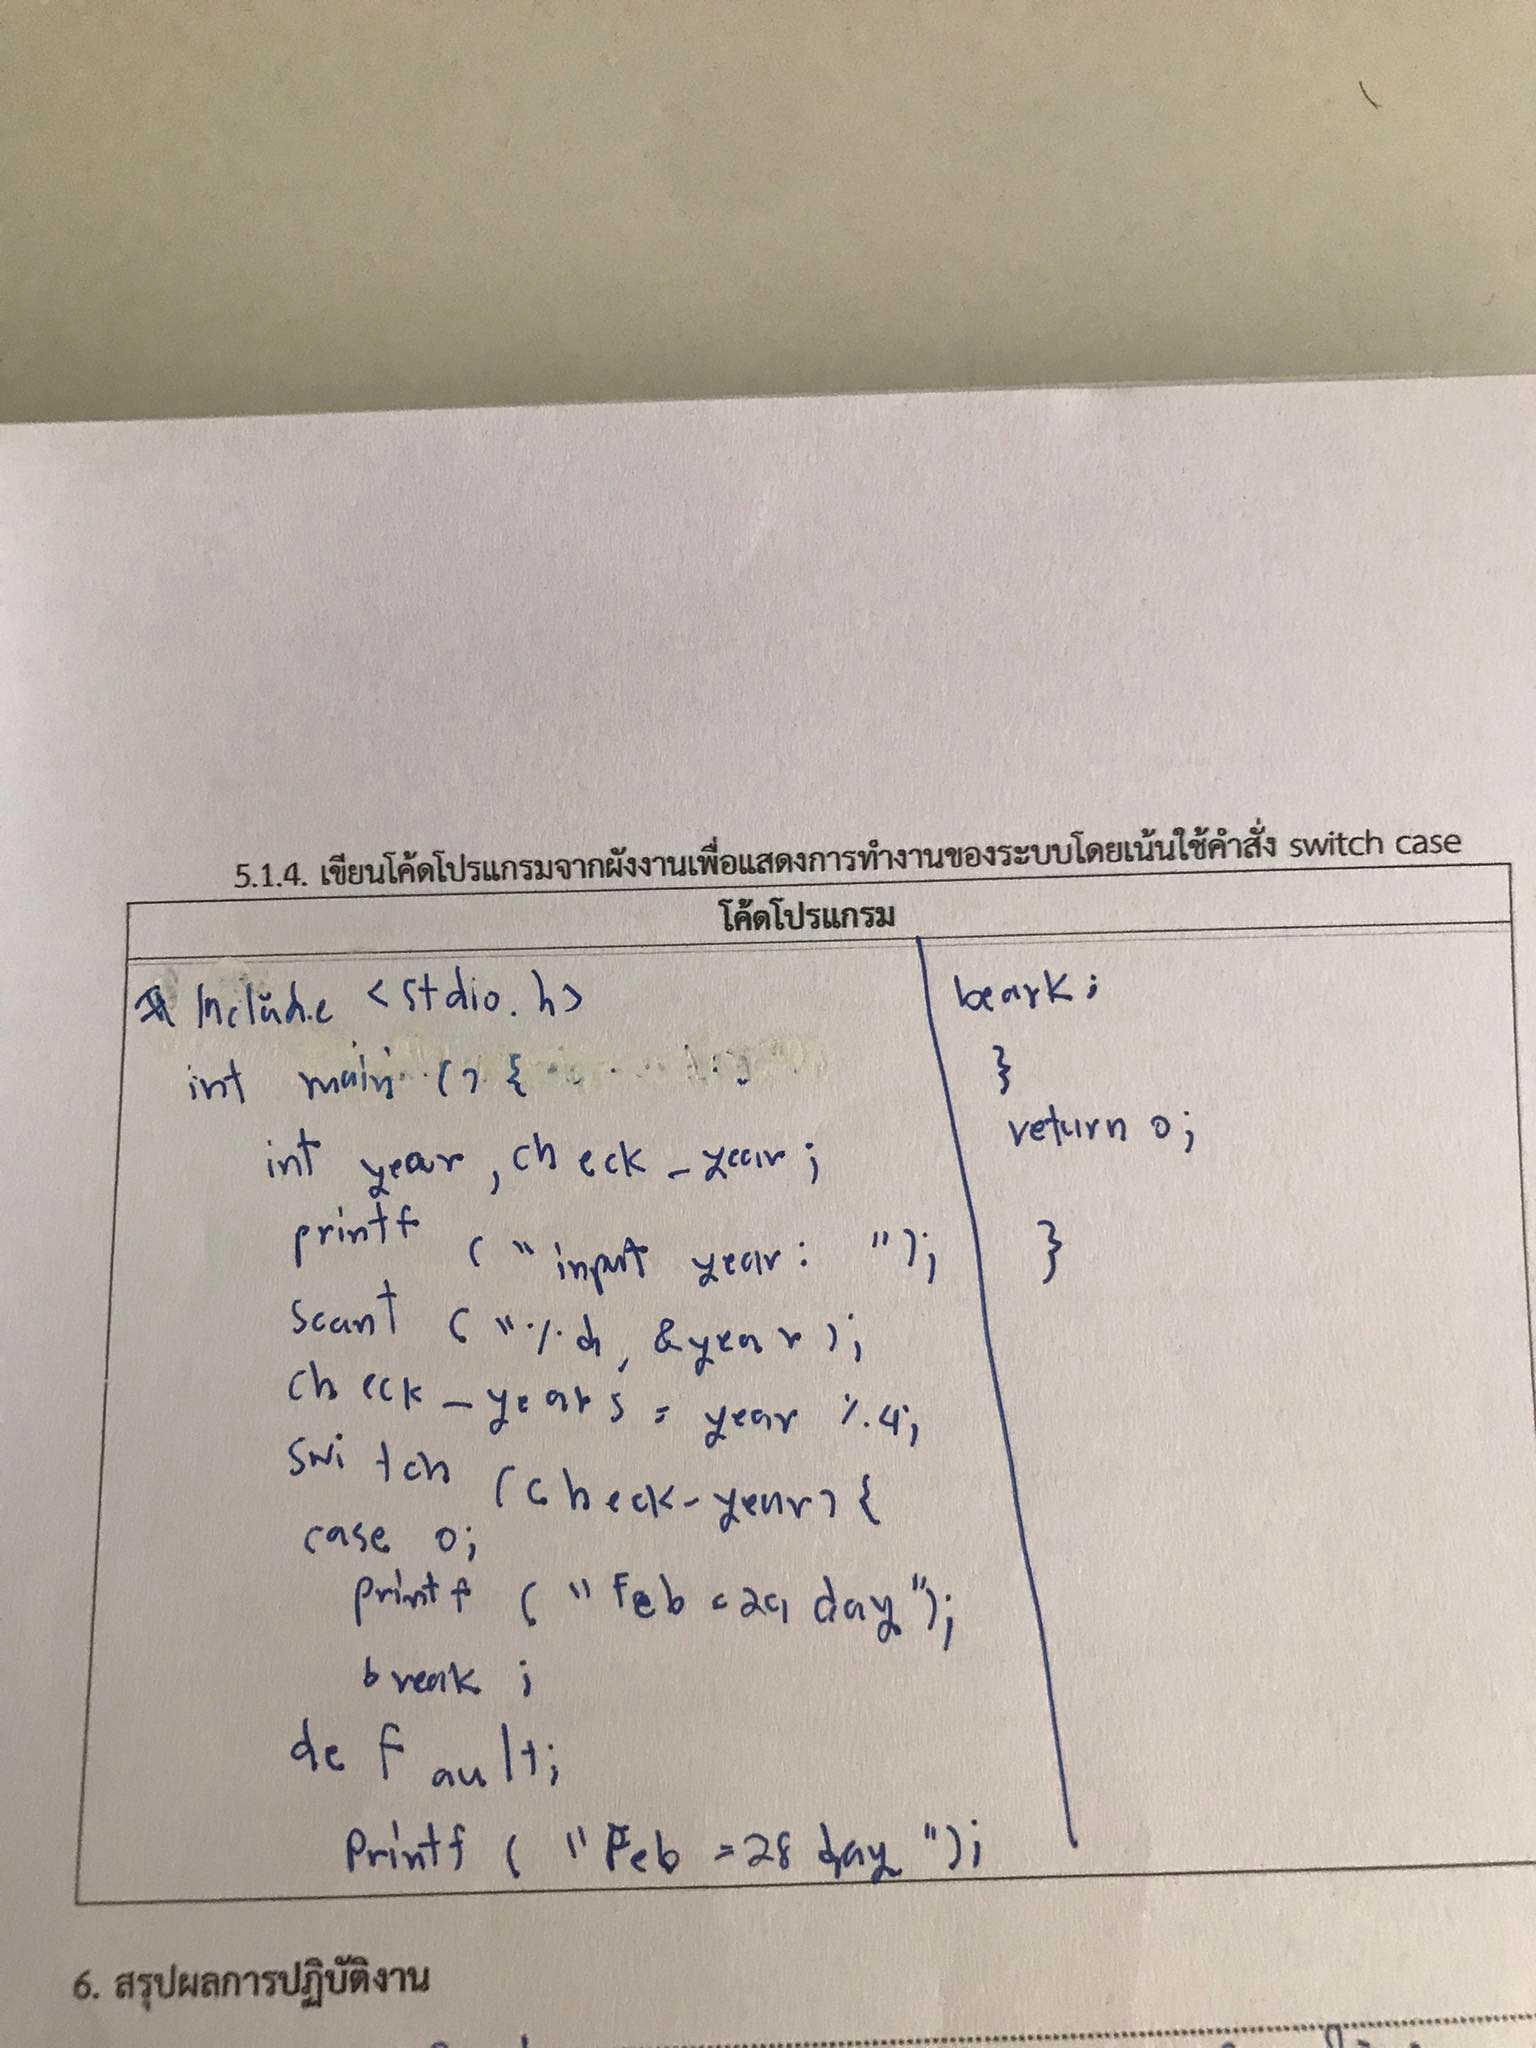 5.1.4. เขียนโค้ดโปรแกรมจากผังงานเพื่อแสดงการทำงานของระบบโดยเน้นใช้คำสั่ง switch case
โค้ดโปรแกรม
# Include <stdio.h>
int main () {
int year, check_year;
printf ("input year: ");
scanf ("%d, &year);
check_years = year %4;
switch (check-year) {
case 0;
printf ("Feb = 29 day");
break ;
default;
Printf ("Feb = 28 day");
beark;
}
return 0;
}
6. สรุปผลการปฏิบัติงาน